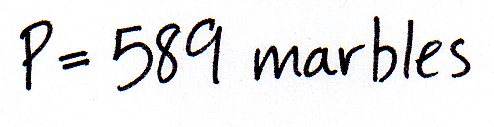 P = 589 marbles